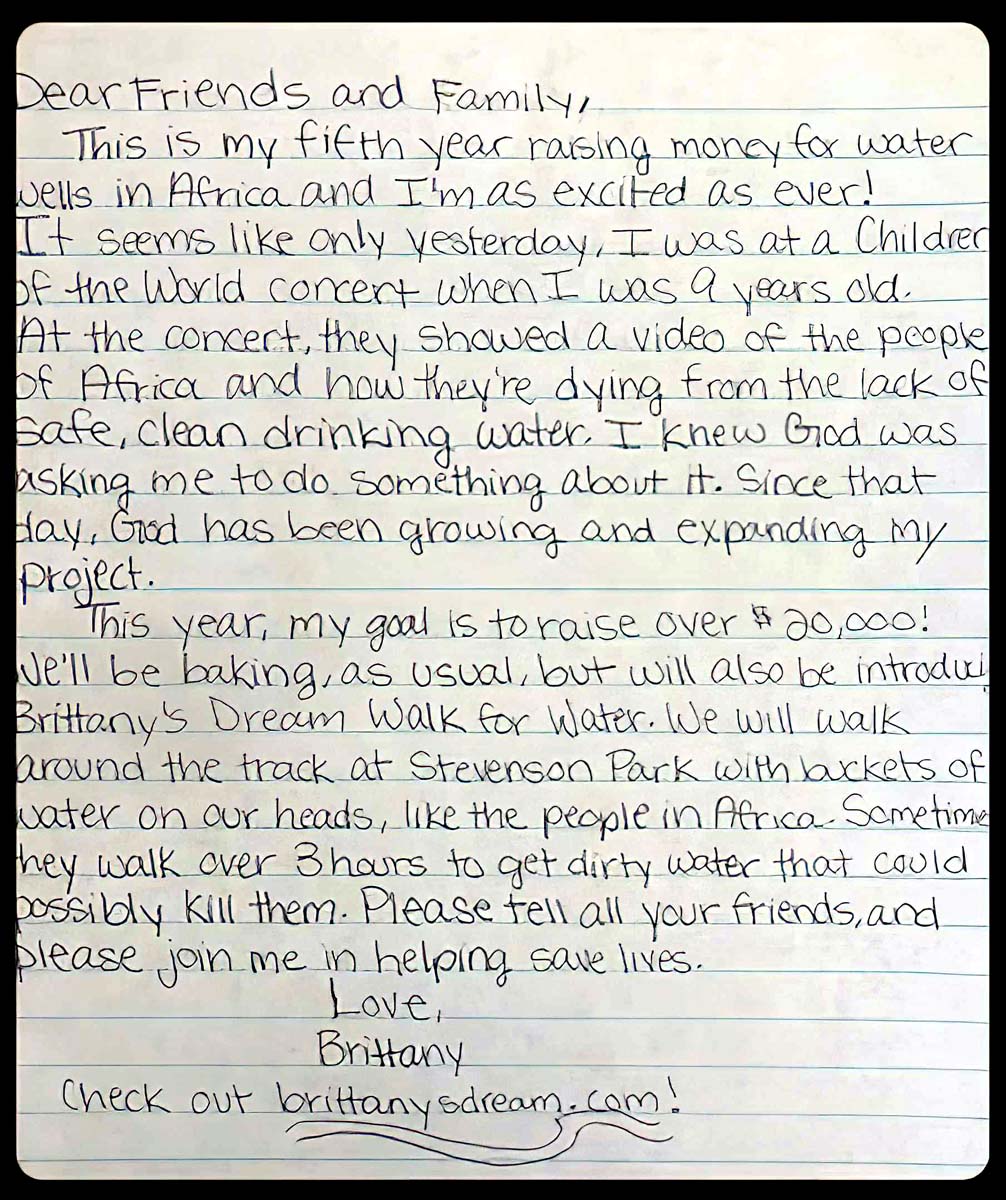 Dear Friends and Family,
This is my fifth year raising money for water
wells in Africa and I'm as excited as ever!
It seems like only yesterday, I was at a Children
of the World concert when I was 9 years old.
At the concert, they showed a video of the people
of Africa and how they're dying from the lack of
safe, clean drinking water. I knew God was
asking me to do something about it. Since that
day, God has been growing and expanding my
project.
This year, my goal is to raise over $20,000!
We'll be baking, as usual, but will also be introduci
Brittany's Dream Walk for Water. We will walk
around the track at Stevenson Park with buckets of
water on our heads, like the people in Africa. Sometime
hey walk over 3 hours to get dirty water that could
possibly kill them. Please tell all your friends, and
please join me in helping save lives.
Love,
Brittany
Check out brittanysdream.com!